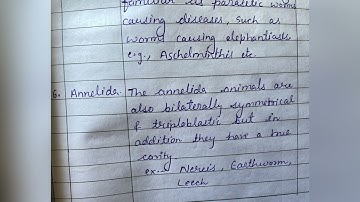 familiar as parasitic worms
causing diseases, such as
worms causing elephantiasis
e.g., Aschelminthis etc
6. Annelida. The annelida animals are
also bilaterally symmetrical
& triploblastic but in
addition they have a true
cavity.
ex- Nereis, Earthworm,
Leech